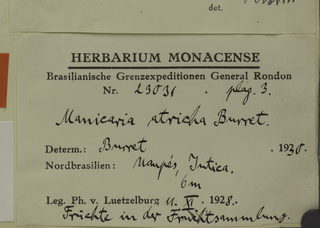 det.
HERBARIUM MONACENSE
Brasilianische Grenzexpeditionen General Rondon
Nr. 23031 . plag. 3.
Manicaria atricha Burret.
Determ.: Burret . 1930.
Nordbrasilien: Uaupés, Jutica.
6 m
Leg. Ph. v. Luetzelburg 11. XI. 1928.
Früchte in der Fruchtsammlung.